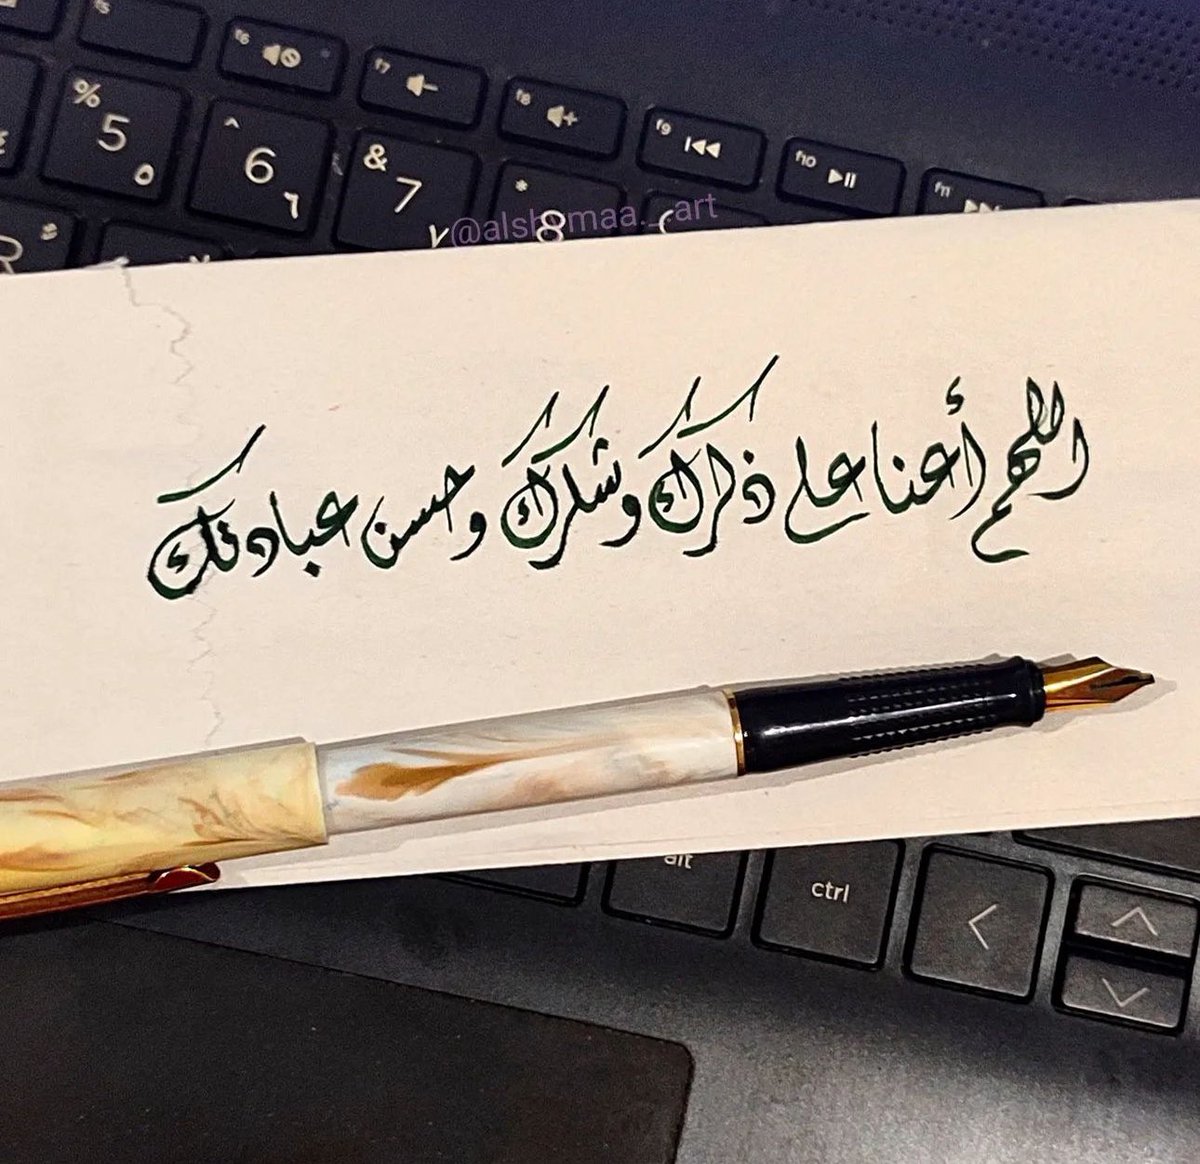 f5 f6 f7 f8 f9 f10 f11
% 5 ٥ ^ 6 ٦ & 7 ٧ * 8
@alshymaa._.art
اللهم أعنا على ذكرك وشكرك وحسن عبادتك
alt ctrl